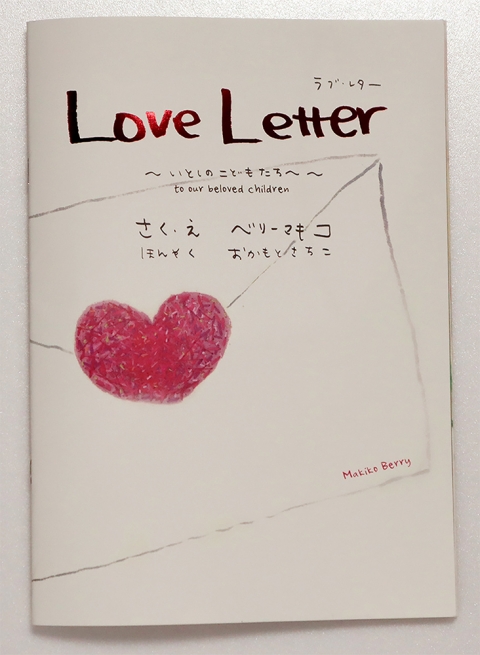 ラブ・レター
Love Letter
～ いとしのこどもたちへ ～
to our beloved children
さく・え ベリーマキコ
ほんやく おかもとさちこ
Makiko Berry